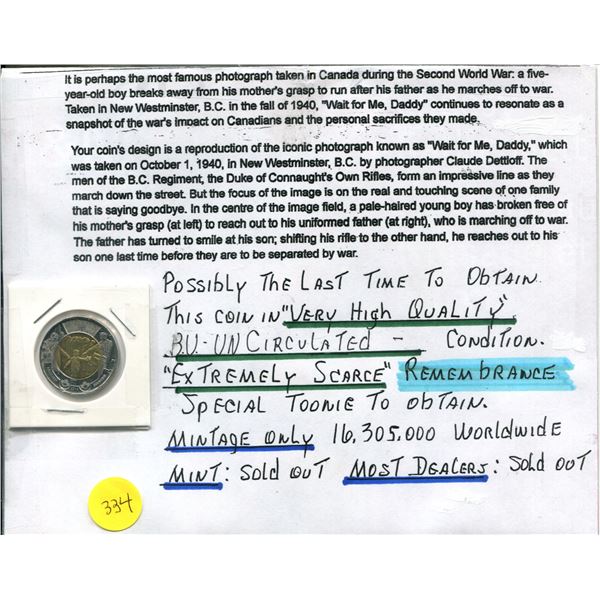 It is perhaps the most famous photograph taken in Canada during the Second World War: a five-
year-old boy breaks away from his mother's grasp to run after his father as he marches off to war.
Taken in New Westminster, B.C. in the fall of 1940, "Wait for Me, Daddy" continues to resonate as a
snapshot of the war's impact on Canadians and the personal sacrifices they made.
Your coin's design is a reproduction of the iconic photograph known as "Wait for Me, Daddy," which
was taken on October 1, 1940, in New Westminster, B.C. by photographer Claude Dettloff. The
men of the B.C. Regiment, the Duke of Connaught's Own Rifles, form an impressive line as they
march down the street. But the focus of the image is on the real and touching scene of one family
that is saying goodbye. In the centre of the image field, a pale-haired young boy has broken free of
his mother's grasp (at left) to reach out to his uniformed father (at right), who is marching off to war.
The father has turned to smile at his son; shifting his rifle to the other hand, he reaches out to his
son one last time before they are to be separated by war.
Possibly The Last Time To Obtain.
This coin in "Very High Quality".
B.U. - UN Circulated - Condition.
"Extremely Scarce" Remembrance
Special Toonie To Obtain.
Mintage Only 16,305,000 Worldwide
Mint: Sold Out Most Dealers: Sold Out
334